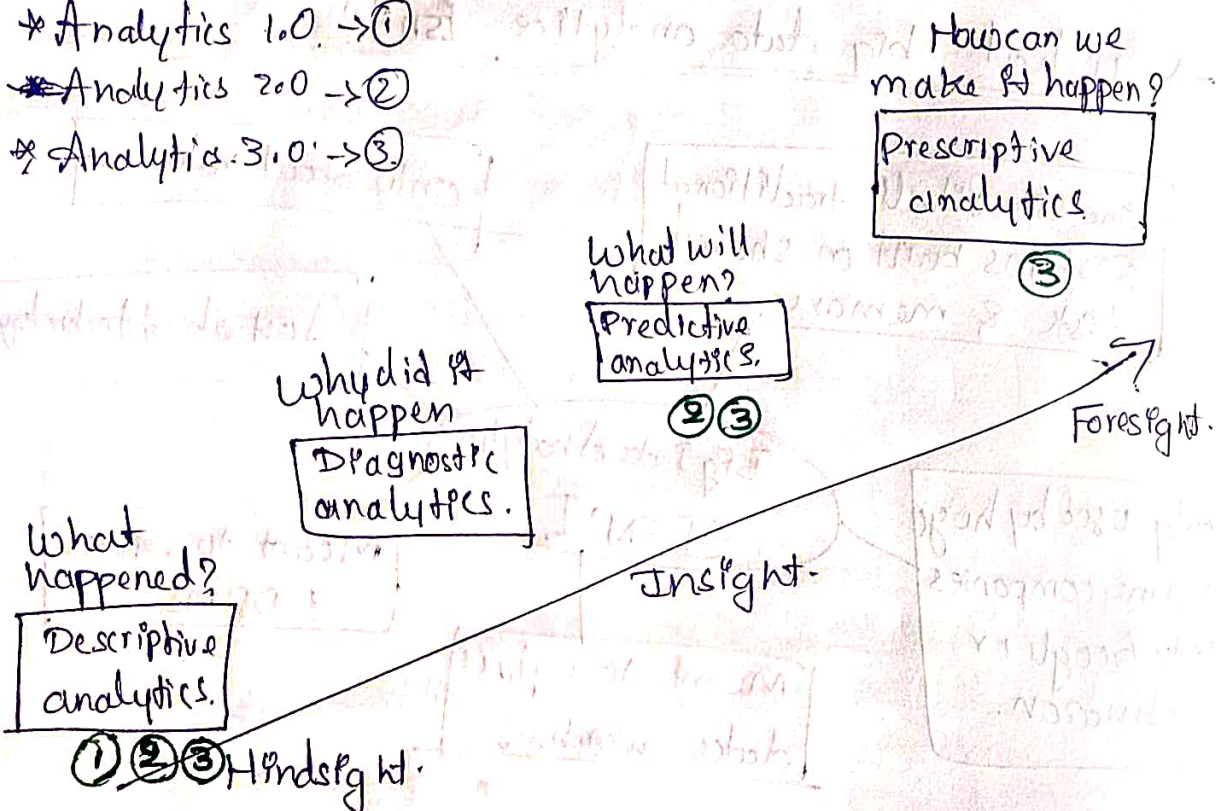 * Analytics 1.0. -> ①
* Analytics 2.0 -> ②
* Analytics 3.0 -> ③
How can we
make it happen?
Prescriptive
analytics
③
What will
happen?
Predictive
analytics.
② ③
Why did it
happen
Diagnostic
analytics.
What
happened?
Descriptive
analytics.
① ② ③
Hindsight.
Insight.
Foresight.